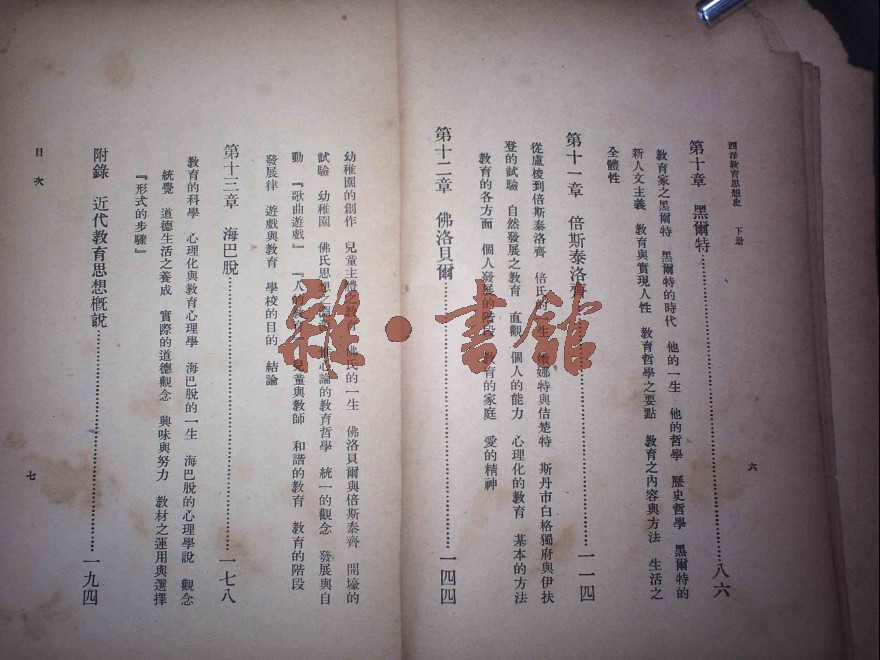 西洋教育思想史 下册
六
第十章 黑爾特……八六
教育家之黑爾特 黑爾特的時代 他的一生 他的哲學 歷史哲學 黑爾特的
新人文主義 教育與實現人性 教育哲學之要點 教育之內容與方法 生活之
全體性
第十一章 倍斯泰洛齊……一一四
從盧梭到倍斯泰洛齊 倍氏的一生 娜特與佶楚特 斯丹市白格獨府與伊扶
登的試驗 自然發展之教育 直觀 個人的能力 心理化的教育 基本的方法
教育的各方面 個人發展的階段 教育的家庭 愛的精神
第十二章 佛洛貝爾……一四四
幼稚園的創作 兒童主體之教育 佛氏的一生 佛洛貝爾與倍斯泰齊 開壕的
試驗 幼稚園 佛氏思想之 論的教育哲學 統一的觀念 發展與自
動 『歌曲遊戲』 『人的教育』 兒童與教師 和諧的教育 教育的階段
發展律 遊戲與教育 學校的目的 結論
第十三章 海巴脫……一七八
教育的科學 心理化與教育心理學 海巴脫的一生 海巴脫的心理學說 觀念
統覺 道德生活之養成 實際的道德觀念 興味與努力 教材之運用與選擇
『形式的步驟』
附錄 近代教育思想概說……一九四
目次
七
雜·書館